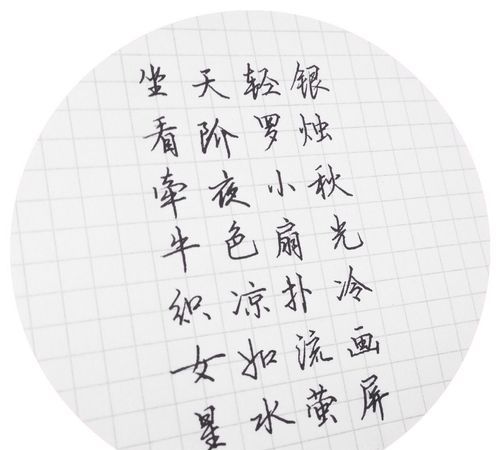 银烛秋光冷画屏
轻罗小扇扑流萤
天阶夜色凉如水
坐看牵牛织女星